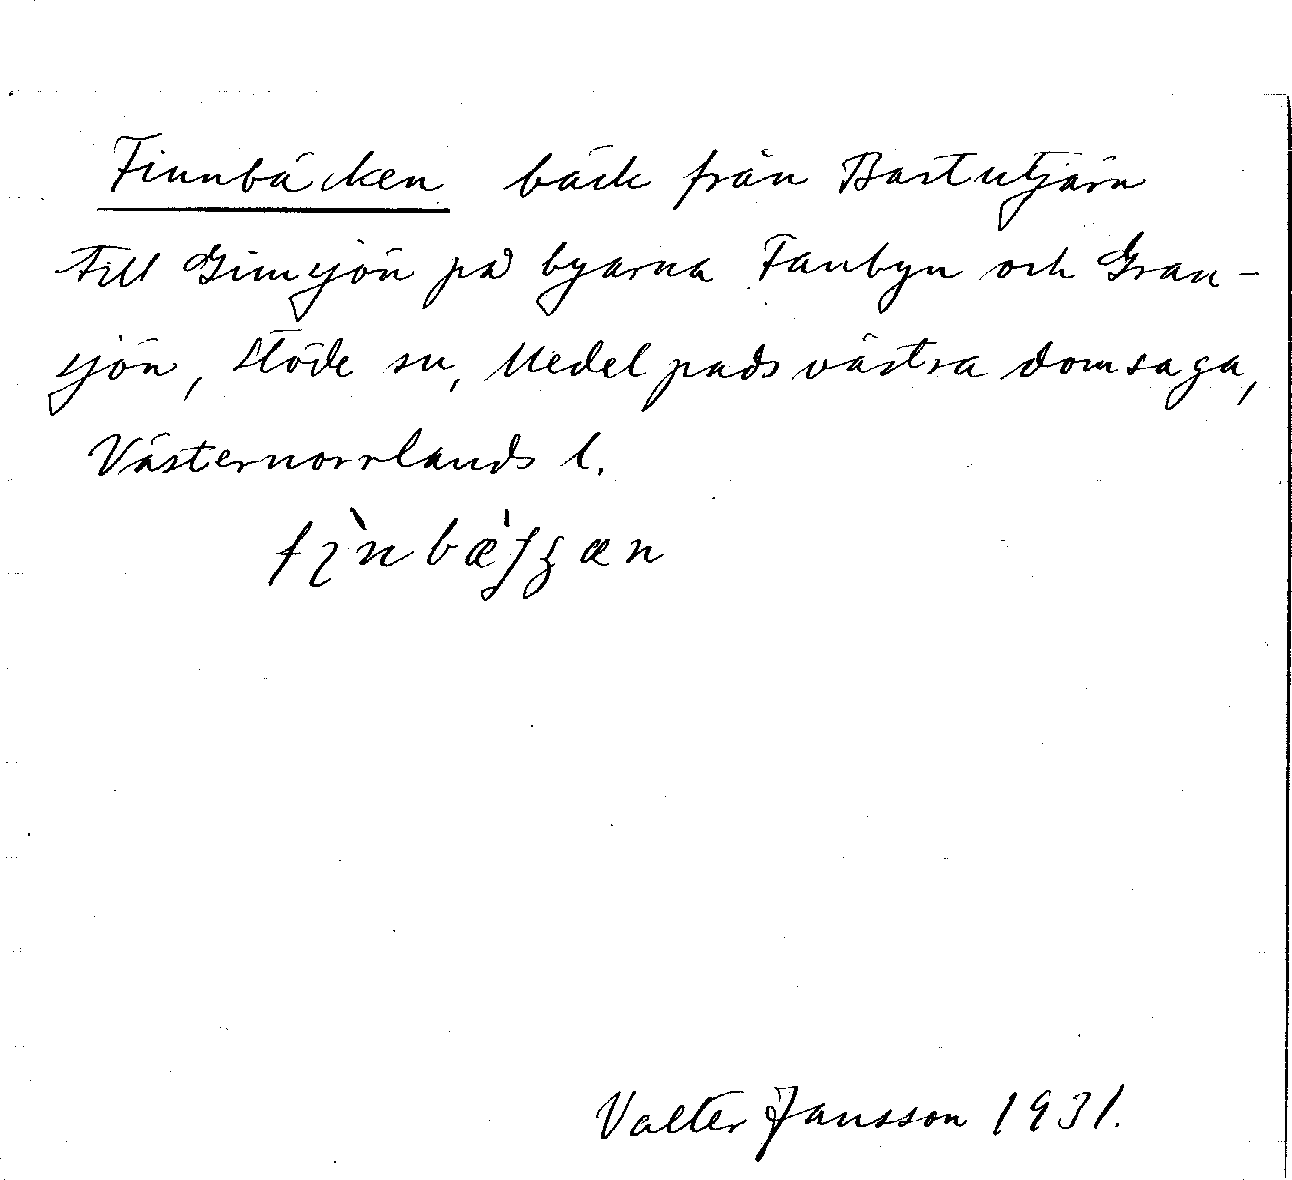 Finnbäcken bäck från Bastutjärn
till Gimsjön på byarna Fanbyn och Gran-
sjön, Stöde sn, Medelpads västra domsaga,
Västernorrlands l.
Valter Jansson 1931.